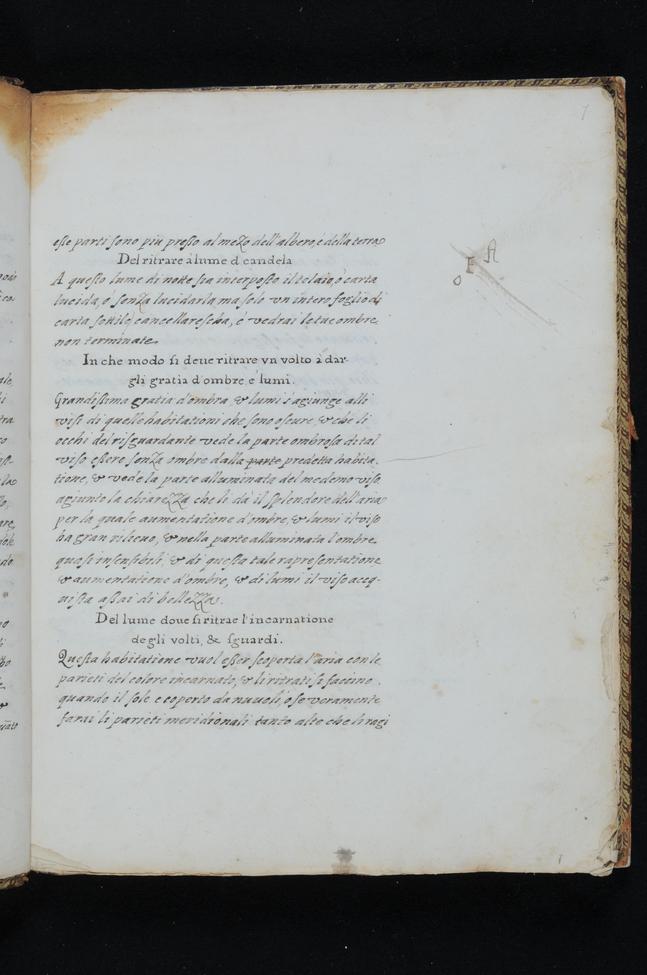 7
esse parti sono più presso al mezo dell'albero, è della terra
Del ritrare à lume d candela
A questo lume di notte sia interposto il telaio, ò carta
lucida, ò senza lucidarla, ma solo vn intero foglio di
carta sottile cancellarescha, è vedrai le tue ombre
non terminate.
In che modo si deue ritrare vn volto à dar-
gli gratia d'ombre è lumi.
Grandissima gratia d'ombra & lumi s'agiunge alli
visi di quelle habitationi che sono oscure, & che li
occhi del risguardante vede la parte ombrosa di tal
viso essere senza ombre dalla parte predetta habita-
tione, & vede la parte alluminata del medemo viso
agiunte la chiarezza che li dà il splendore dell'aria
per la quale aumentatione d'ombre, & lumi il viso
ha gran rilieuo, & nella parte alluminata l'ombre
quasi insensibili, & di questa tale rapresentatione
& aumentatione d'ombre, & di lumi il viso acq-
uista assai di bellezza.
Del lume doue si ritrae l'incarnatione
degli volti, & sguardi.
Questa habitatione vuol esser scoperta l'aria con le
parieti del colore incarnato, & li ritrati se faccino
quando il sole è coperto da nuuoli, ò se veramente
farai li parieti meridionali tanto alte che li ragi